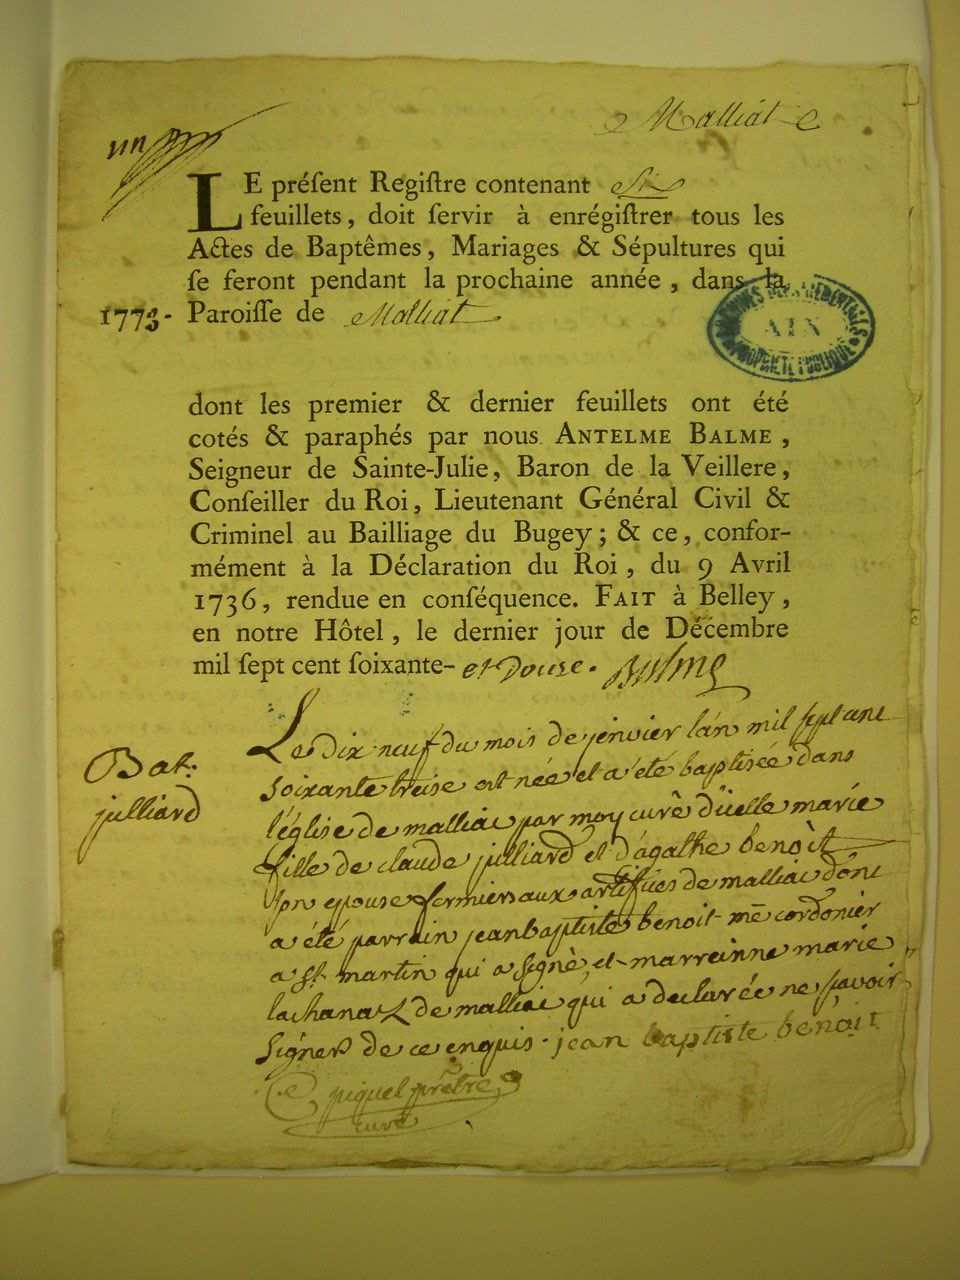 Malliat
un
LE préſent Regiſtre contenant six
feuillets, doit ſervir à enrégiſtrer tous les
Actes de Baptêmes, Mariages & Sépultures qui
ſe feront pendant la prochaine année, dans la
1773. Paroiſſe de Malliat
ARCHIVES DÉPARTEMENTALES
AIN
PROPRIÉTÉ PUBLIQUE
dont les premier & dernier feuillets ont été
cotés & paraphés par nous ANTELME BALME,
Seigneur de Sainte-Julie, Baron de la Veillere,
Conſeiller du Roi, Lieutenant Général Civil &
Criminel au Bailliage du Bugey; & ce, confor-
mément à la Déclaration du Roi, du 9 Avril
1736, rendue en conſéquence. FAIT à Belley,
en notre Hôtel, le dernier jour de Décembre
mil ſept cent ſoixante- et Douze. Balme
Bat.
julliard
Le dix neuf du mois de jenvier l'an mil sept ant
soixante treise est née et a été baptisée dans
l'église de malliac par moy curé d'uelle marie
fille de claude julliard et d'agathe benoît
son epouse fermiers aux artifices de malliac dont
a été parrain jean baptiste benoit me cordonier
a st. martin qui a signé, et marreinne marie
lachana de malliac qui a declarée ne savoir
signer de ce enquis. jean baptiste benoit
piquel prêtre
curé